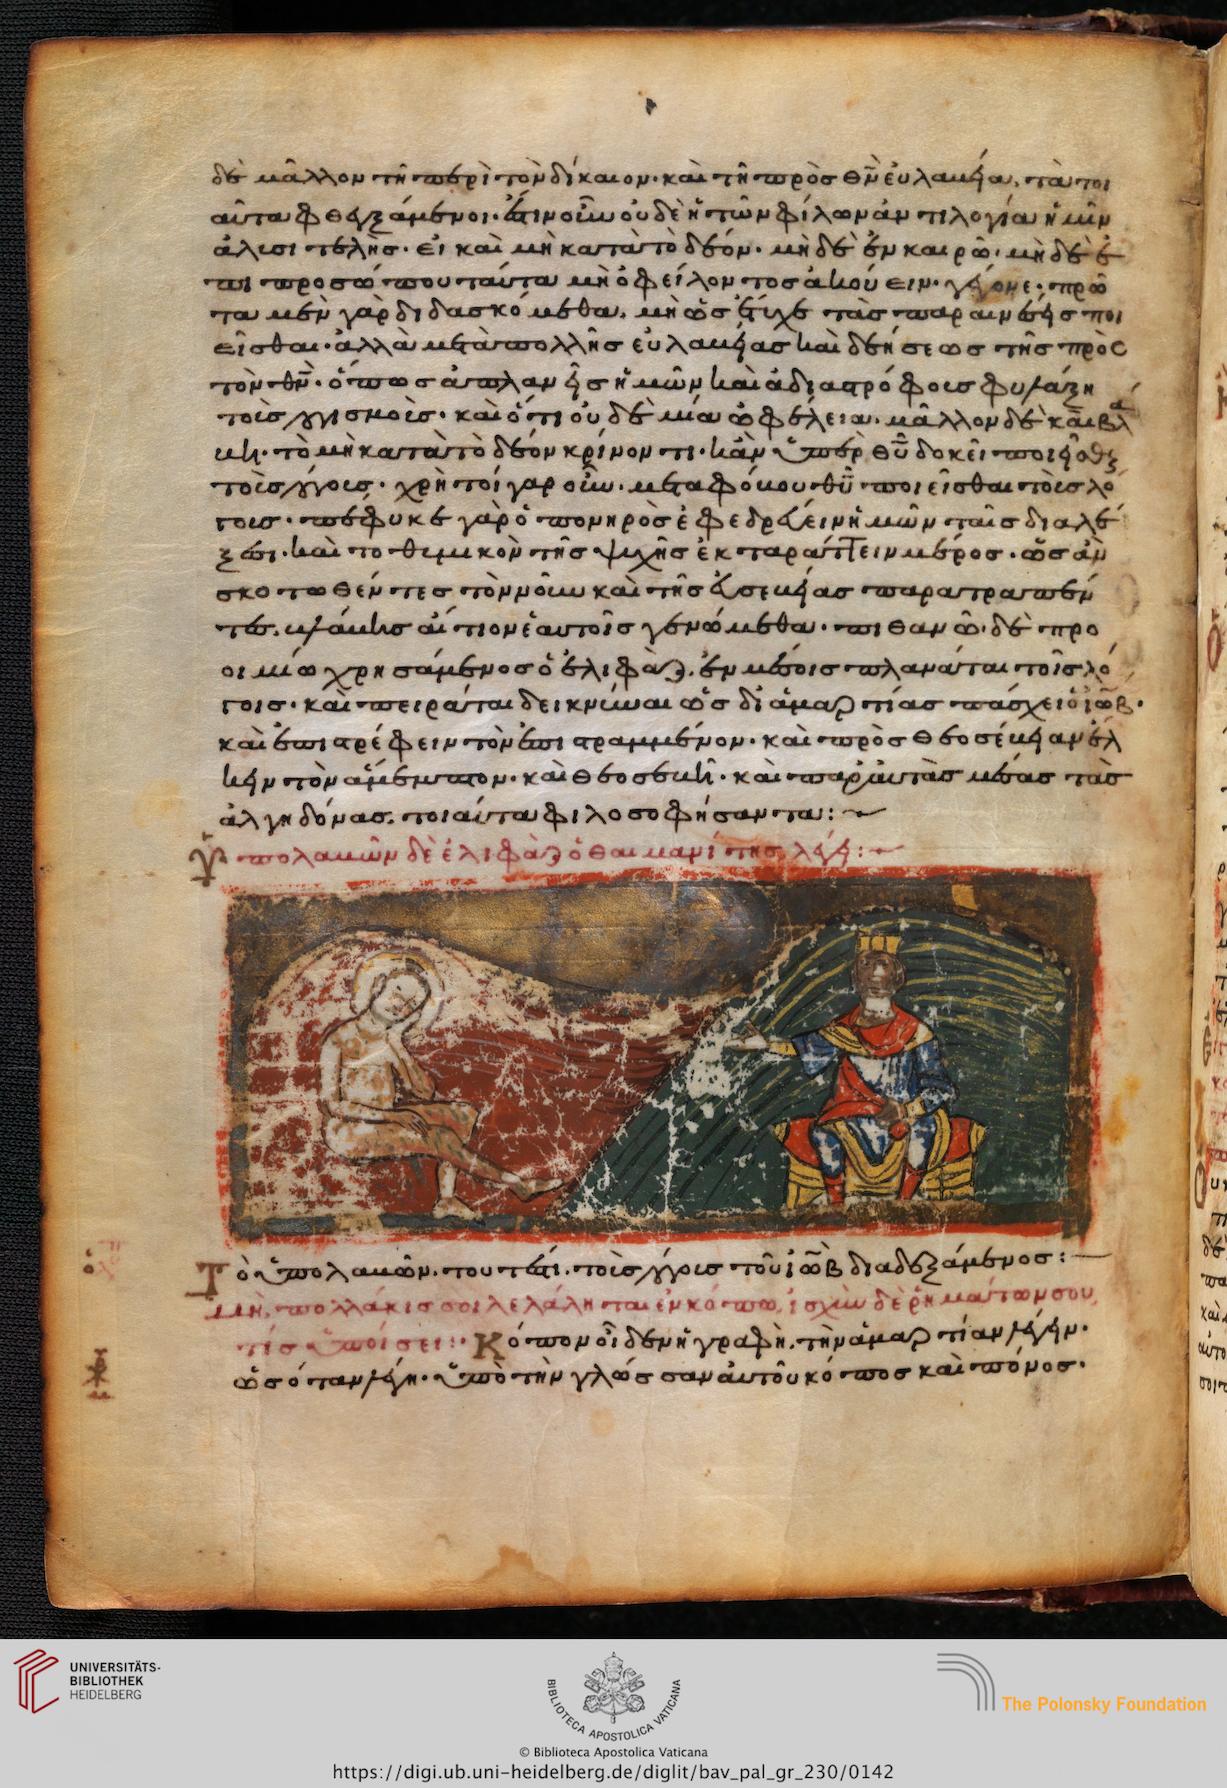 δὲ μᾶλλον τῆ περὶ τὸν δίκαιον· καὶ τῆ πρὸς θν εὐλαβεία, τὰ τοι
αῦτα φθεγξάμενοι· ἔστιν οὖν οὐδὲ ἡ τῶν φίλων ἀντιλογία ἡμῖν
ἀλυσιτελὴς· εἰ καὶ μὴ κατὰ τὸ δέον· μὴ δὲ ἐν καιρῶ· μὴ δὲ ἐ
πι προσώπου ταῦτα μὴ ὀφείλοντος ἀκούειν· γέγονε· πρῶ
τα μὲν γὰρ διδασκόμεθα, μὴ ὡς ἔτυχε τὰς παραινέσεις ποι
εῖσθαι· ἀλλὰ μετὰ πολλῆς εὐλαβείας καὶ δεήσεως τῆς πρὸς
τὸν θν· ὅπως ἀπλανεῖς ἡμῶν καὶ ἀδιαστρόφους φυλάξη
τοὺς λογισμοὺς· καὶ ὅτι οὐδὲ μία ὠφέλεια· μᾶλλον δὲ καὶ βλά
βη· τὸ μὴ κατὰ τὸ δέον κρίνοντι· κἂν ὑπὲρ θυ δοκεῖ ποιεῖσθαι
τοὺς λόγους· χρὴ τοίγαροῦν· μετα φόβου θυ ποιεῖσθαι τοὺς λό
γους· πέφυκε γὰρ ὁ πονηρὸς ἐφεδρεύειν ἡμῶν ταῖς διαλέ
ξεσι· καὶ το θυμικὸν τῆς ψυχῆς ἐκταράττειν μέρος· ὡς ἂν
σκοτωθέντες τὸν νοῦν καὶ τῆς εὐσεβείας παρατραπέν
τες, βλάβης αἴτιον ἑαυτοῖς γενώμεθα· πιθανῶ δὲ προ
οιμίω χρησάμενος ὁ ἐλιφὰζ, ἐν μέσοις πλανᾶται τοῖς λό
γοις· καὶ πειρᾶται δεικνύναι ὡς δι ἁμαρτίας πάσχει ὁ ἰώβ·
καὶ ἐπιστρέφειν τὸν ἐπιστραμμένον· καὶ πρὸς θεοσέβειαν ἕλ
κειν τὸν ἄμεμπτον· καὶ θεοσεβῆ· καὶ παρ αὐτὰς μέσας τὰς
ἀλγηδόνας, τοιαῦτα φιλοσοφήσαντα:
Ὑπολαβὼν δὲ ἐλιφὰζ ὁ θαιμανίτης λέγει:
Τὸ ὑπολαβὼν, τουτέστι, τοὺς λόγους τοῦ ἰὼβ διαδεξάμενος:
μὴ, πολλάκις σοι λελάληται ἐν κόπω, ἰσχὺν δὲ ῥημάτων σου,
τίς ὑποίσει: Κόπον οἶδεν ἡ γραφὴ, τὴν ἁμαρτίαν λέγειν·
ὡς ὅταν λέγη· ὑπὸ τὴν γλῶσσαν αὐτοῦ κόπος καὶ πόνος·
UNIVERSITÄTS-
BIBLIOTHEK
HEIDELBERG
BIBLIOTECA APOSTOLICA VATICANA
The Polonsky Foundation
© Biblioteca Apostolica Vaticana
https://digi.ub.uni-heidelberg.de/diglit/bav_pal_gr_230/0142